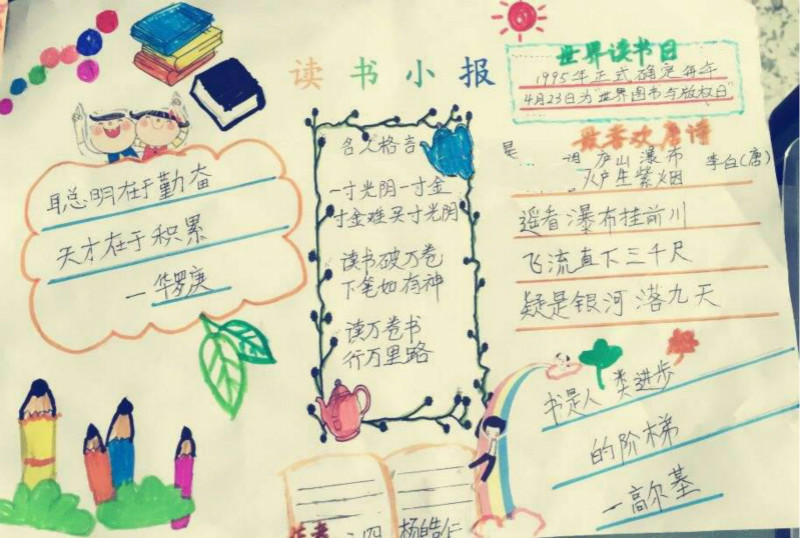 读书小报
聪明在于勤奋
天才在于积累
一华罗庚
名人格言
一寸光阴一寸金
寸金难买寸光阴
读书破万卷
下笔如有神
读万卷书
行万里路
世界读书日
1995年正式确定每年
4月23日为"世界图书与版权日"
最喜欢唐诗
庐山瀑布
李白(唐)
生紫烟
遥看瀑布挂前川
飞流直下三千尺
疑是银河落九天
书是人类进步
的阶梯
一高尔基
二四 杨皓